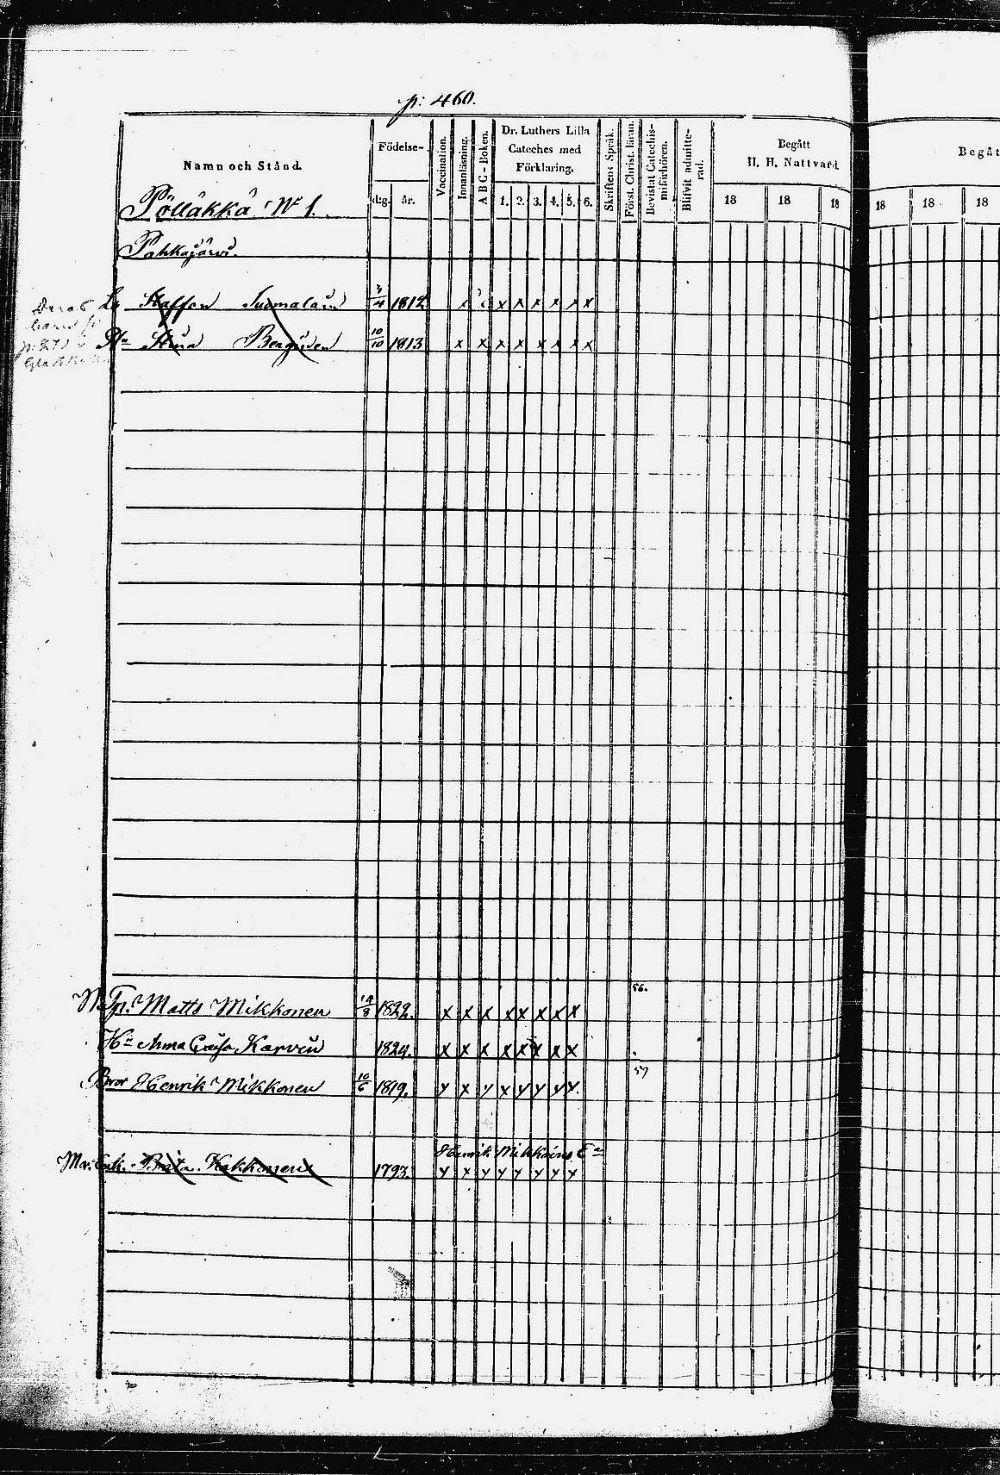 p: 460.
Namn och Stånd.
Födelse-
dag. år.
Vaccination.
Innanläsning.
ABC-Boken.
Dr. Luthers Lilla
Cateches med
Förklaring.
1. 2. 3. 4. 5. 6.
Skriftens Språk.
Först. Christ. läran.
Bevistat Catechis-
miförhören.
Blifvit admitte-
rad.
Begått
H. H. Nattvard.
18 18 18
Begåt
18 18 18
Pöllåkkå N 1.
Pahkajärvi.
Staffan Suomalain 3/4 1812 x x x x x x x
Hu Stina 10/10 1813 x x x x x x x x
56.
Matts Mikkonen 19/9 1822. x x x x x x x x
Hu Anna Caisa Karvin 1824. x x x x x x x x
57
Bror Henrik Mikkonen 10/6 1819. x x x x x x x x
Henrik Mikkoins Ea
Enk. Brita Kakkonen 1793. x x x x x x x x